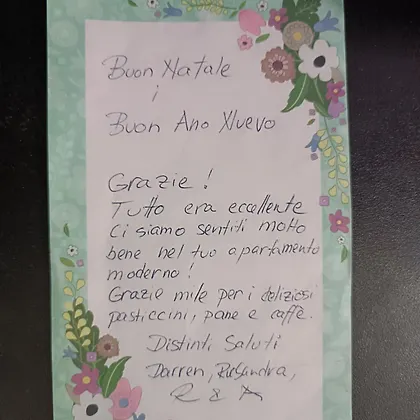 Buon Natale
i
Buon Ano Nuevo
Grazie!
Tutto era eccellente
ci siamo sentiti molto
bene nel tuo apartamento
moderno!
Grazie mile per i deliziosi
pasticcini, pane e caffè.
Distinti Saluti
Darren, RuSandra,
R & A